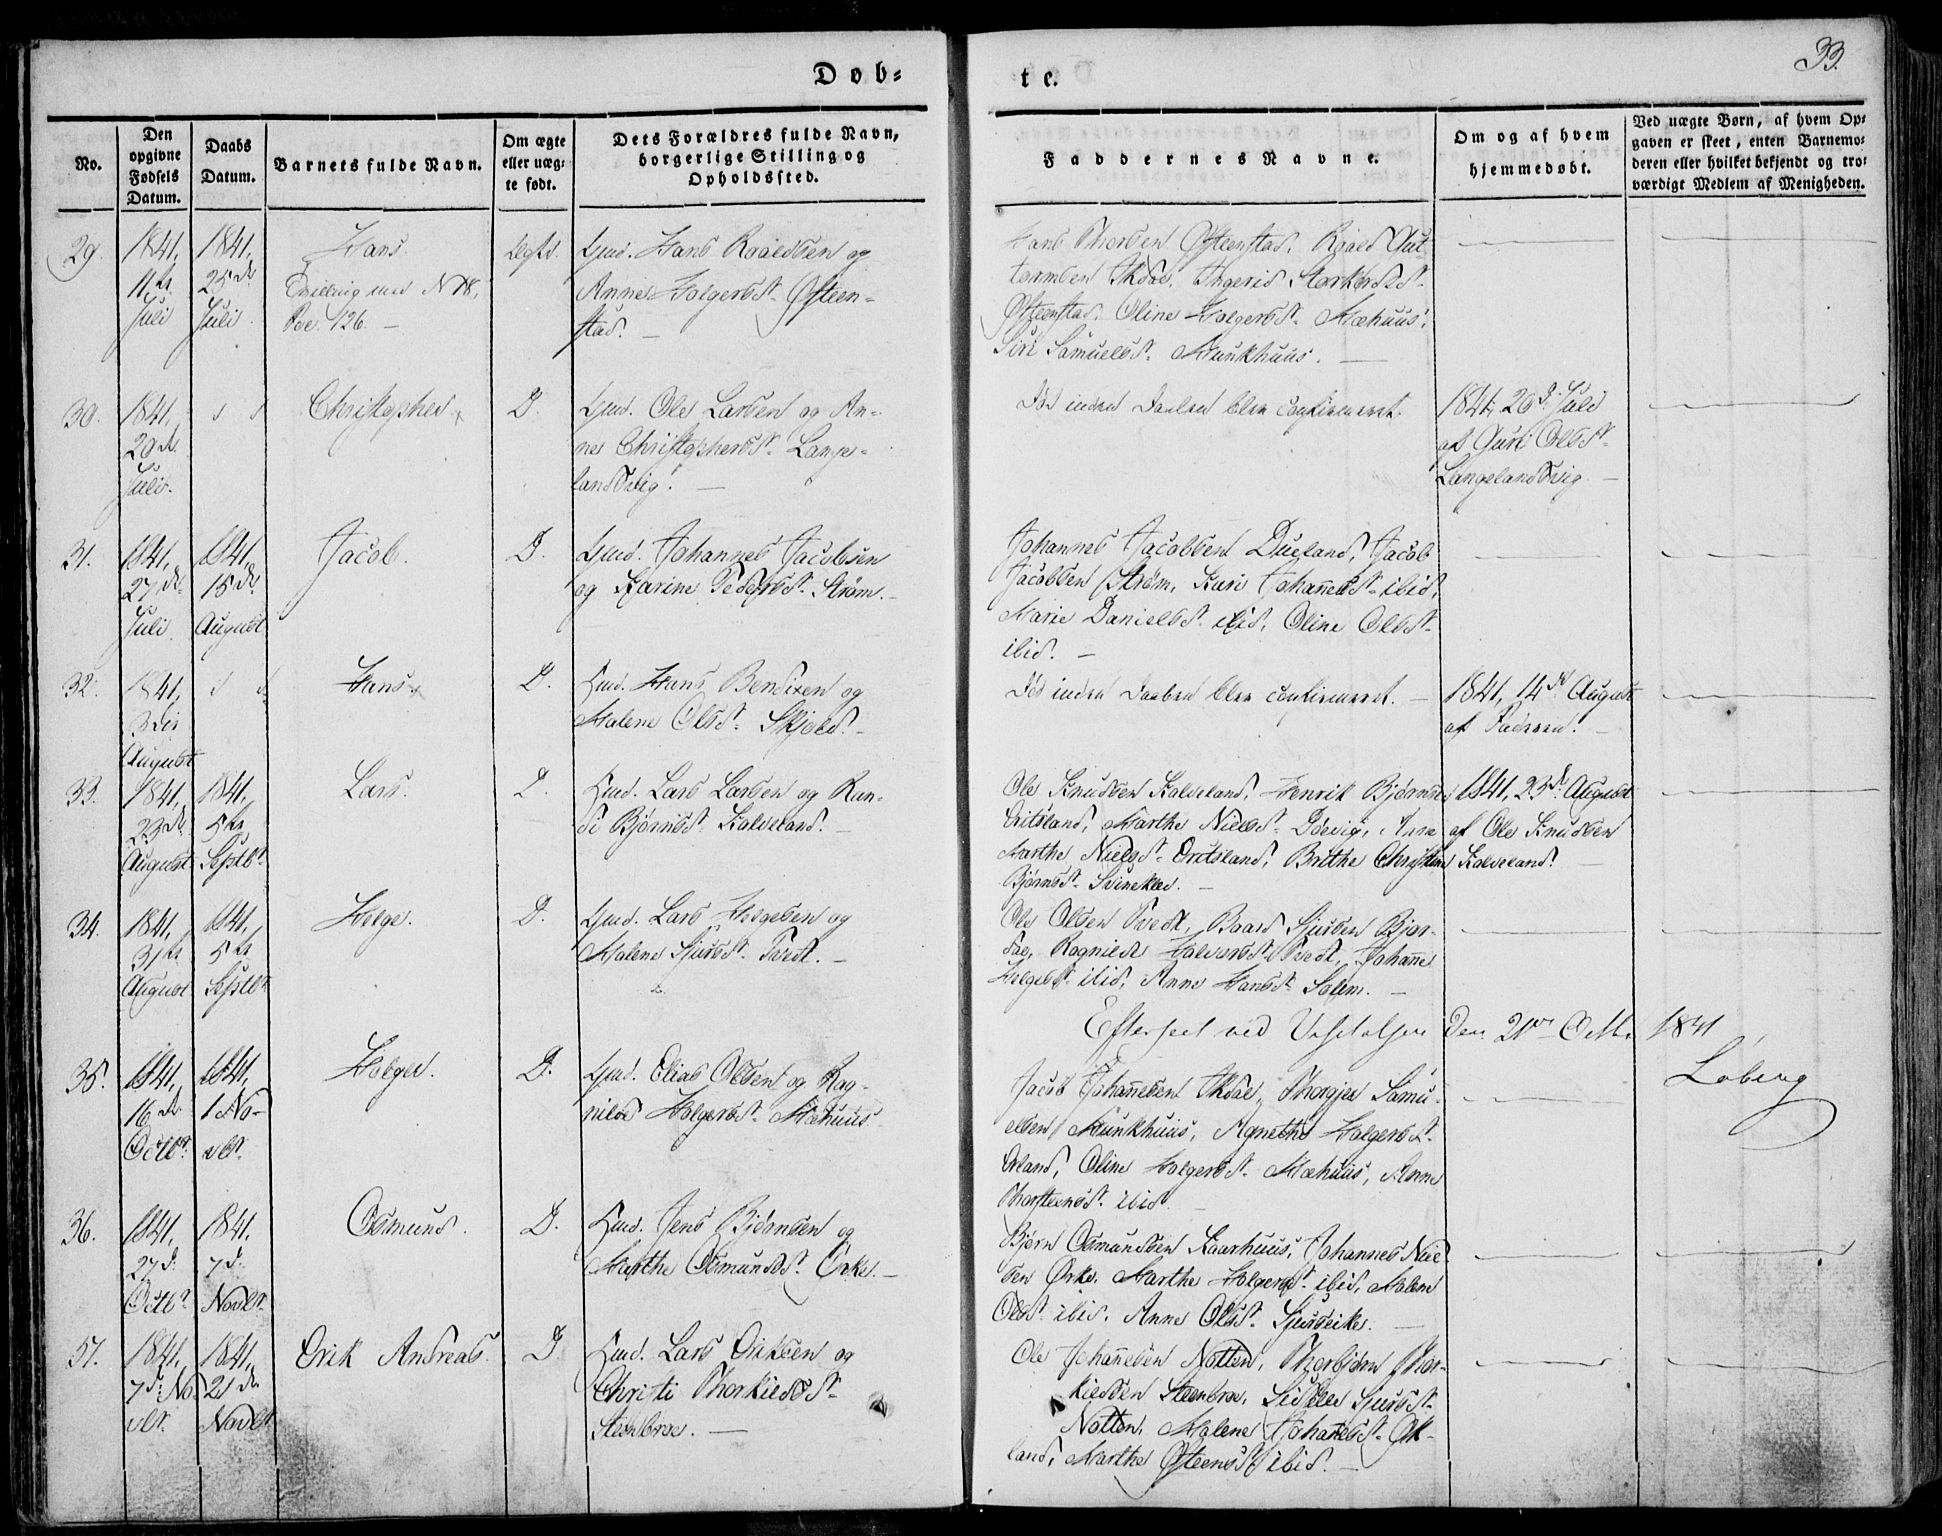 33.
Døb-
te.
No.
Den
opgivne
Fødsels
Datum.
Daabs
Datum.
Barnets fulde Navn.
Om ægte
eller uæg-
te født.
Dets Forældres fulde Navn,
borgerlige Stilling og
Opholdssted.
Faddernes Navne.
Om og af hvem
hjemmedøbt.
Ved uægte Børn, af hvem Op-
gaven er skeet, enten Barnemo-
deren eller hvilket bekjendt og tro-
værdigt Medlem af Menigheden.
29.
1841,
11te
Juli
1841,
25de
Juli.
Hans.
Tvilling med
126. —
Ægte.
Gmd. Hans Roaldsen og
Anne Holgersd. Østeen-
stad. —
Hans Thorsen Østeenstad, Roald Gut-
tormsen Ingerid Storkorsd.
Østeenstad, Oline Holgersd. Mæhuus,
Siri Samuelsd. Munkhuus. —
30.
1841,
20de
Juli.
Christopher
D.
Gmd. Ole Larsen og An-
ne Christophersd. Lange-
landsvig. —
Død inden Daaben blev confirmeret.
1841, 20d. Juli
af Guri Olsd.
Langelandsvig. —
31.
1841,
27de
Juli.
1841,
15de
August
Jacob.
D.
Gmd. Johannes Jacobsen
og Karine Pedersd. Strøm. —
Johannes Jacobsen Dueland, Jacob
Jacobsen Strøm, Kari Johannesd. ibid,
Marie Danielsd. ibid, Oline Olsd.
ibid. —
32.
1841,
3die
August
Hans
D.
Gmd. Hans Bendixen og
Malene Olsd. Skjold. —
Død inden Daaben blev confirmeret. —
1841, 14de August
af Faderen. —
33.
1841,
23de
August
1841,
5te
Septbr.
Lars.
D.
Gmd. Lars Larsen og Ran-
di Bjørnsd. Kalveland. —
Ole Knudsen Kalveland, Henrik Bjørnsen
Critsland, Marthe Nielsd. Døevig, Anne
Marthe Nielsd. Critsland, Brithe Christine
Bjørnsd. —
1841, 23de August
af Ole Knudsen
Kalveland. —
34.
1841,
31te
August
1841,
5te
Septbr.
Helge.
D.
Gmd. Lars Helgesen og
Malene Sjursd. Tvedt. —
Ole Olsen Tvedt, Baard Sjursen Bjør-
dal, Ragnilde Halvorsd. Tvedt, Johanne
Helgesd. ibid, Anne Hansd. Solem. —
Efterseet ved Visitatsen den 21de Octbr. 1841,
Loberg
35.
1841,
16de
Octbr.
1841,
1 No-
vbr.
Holger.
D.
Gmd. Elias Olsen og Rag-
nilde Holgersd. Mæhuus
Jacob Johannesen Thorgjer Samu-
elsen Munkhuus, Agnethe Holgersd.
Oline Holgersd. Mæhuus, Anne
Thorsteensd. ibid. —
36.
1841,
27d.
Octbr.
1841,
7d.
Novbr.
Osmund.
D.
Gmd. Jens Bjørnsen og
Marthe Osmundsd. Ørke. —
Bjørn Osmundsen Kaarhuus, Johannes Niel-
sen Ørke, Marthe Holgersd. ibid, Malene
Olsd. ibid, Anne Olsd. Sjurseike. —
37.
1841,
7d. No-
vbr.
1841,
21de
Novbr.
Erik Andreas.
D.
Gmd. Lars Eriksen og
Christi Thorkieldsd.
Steenbroe. —
Ole Johannesen Natten, Thorbjørn Thor-
kieldsen Steenbroe, Sidselle Sjursd.
Natten, Malene Johannesd. Øk-
land, Marthe Østeensd. ibid. —